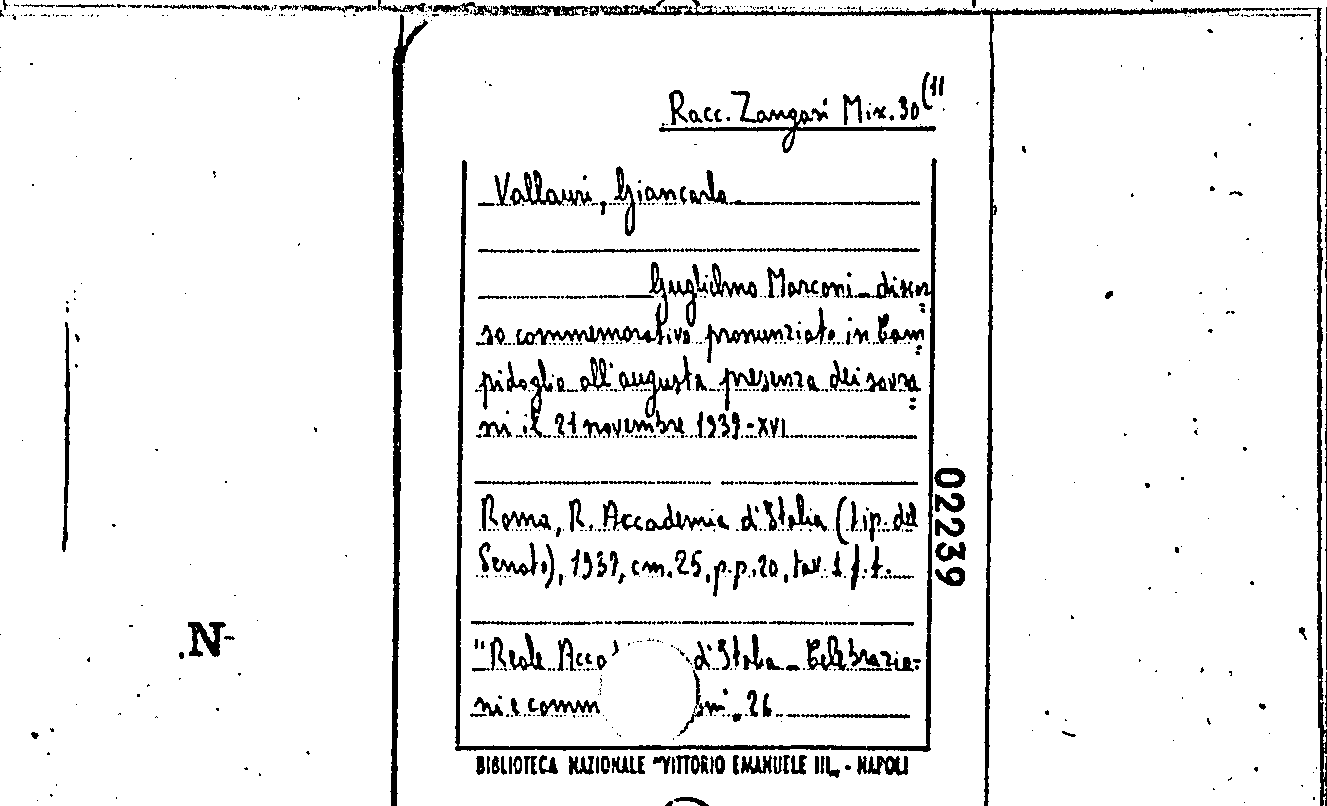 Racc. Zangari Mix. 30 (11
Vallauri, Giancarlo
Guglielmo Marconi - discor=
so commemorativo pronunziato in Cam=
pidoglio all'augusta presenza dei sovra=
ni il 21 novembre 1939-XVI
02239
Roma, R. Accademia d'Italia (Tip. del
Senato), 1939, cm. 25, p.p. 20, tav. 1 f.t.
.N-
"Reale Acca d'Italia - Celebrazio=
ni e comm oni". 26
BIBLIOTECA NAZIONALE "VITTORIO EMANUELE III„ - NAPOLI